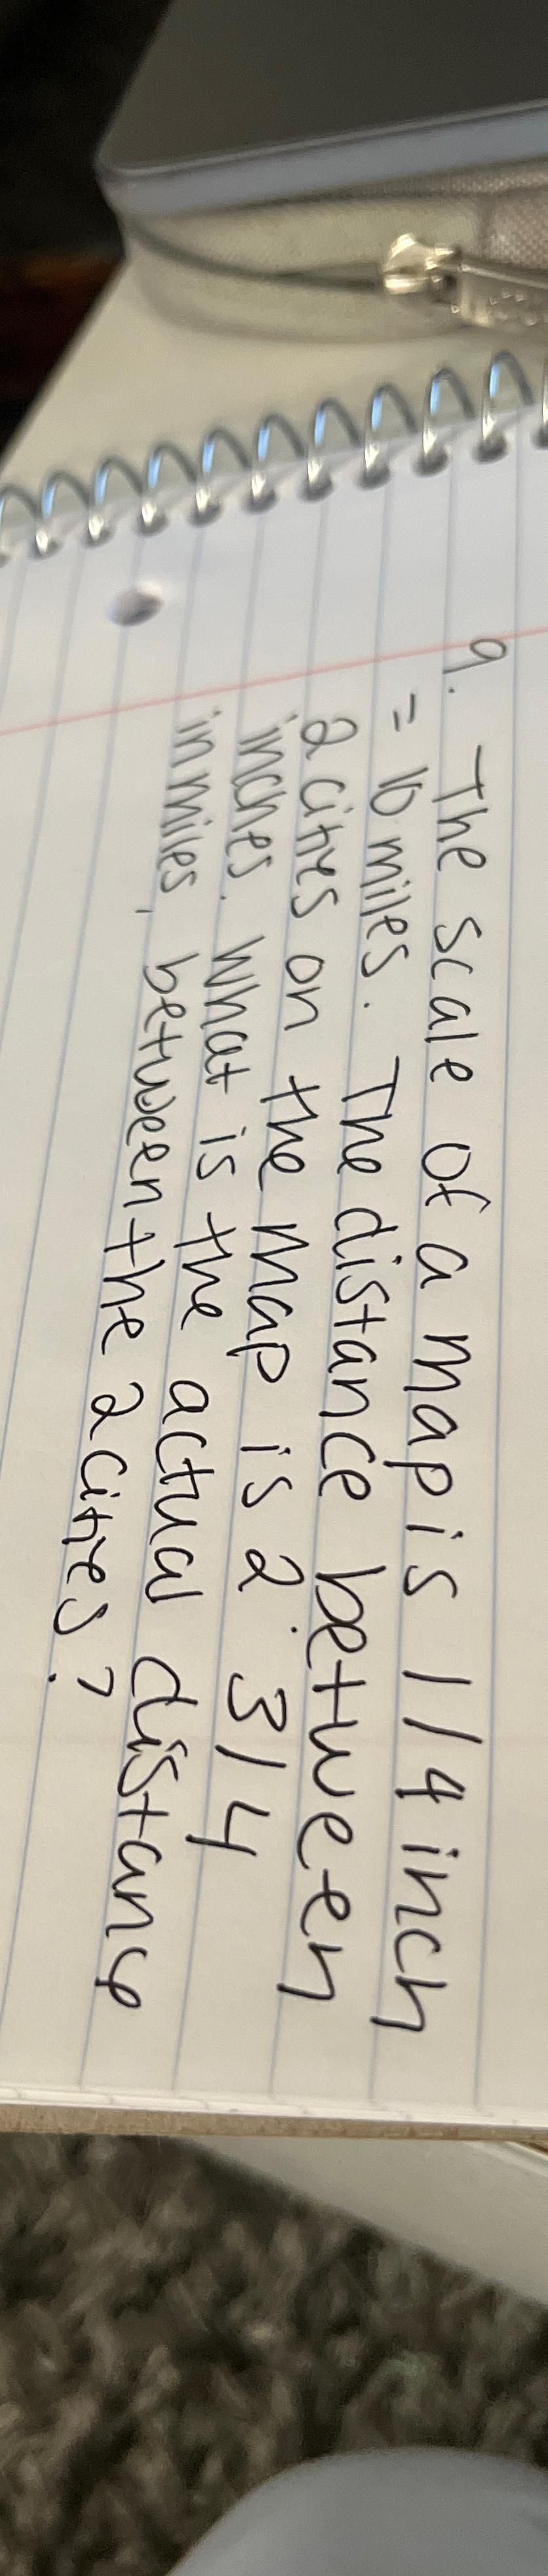 9. The scale of a map is 1/4 inch
= 10 miles. The distance between
2 cities on the map is 2 3/4
inches. What is the actual distance
in miles, between the 2 cities?